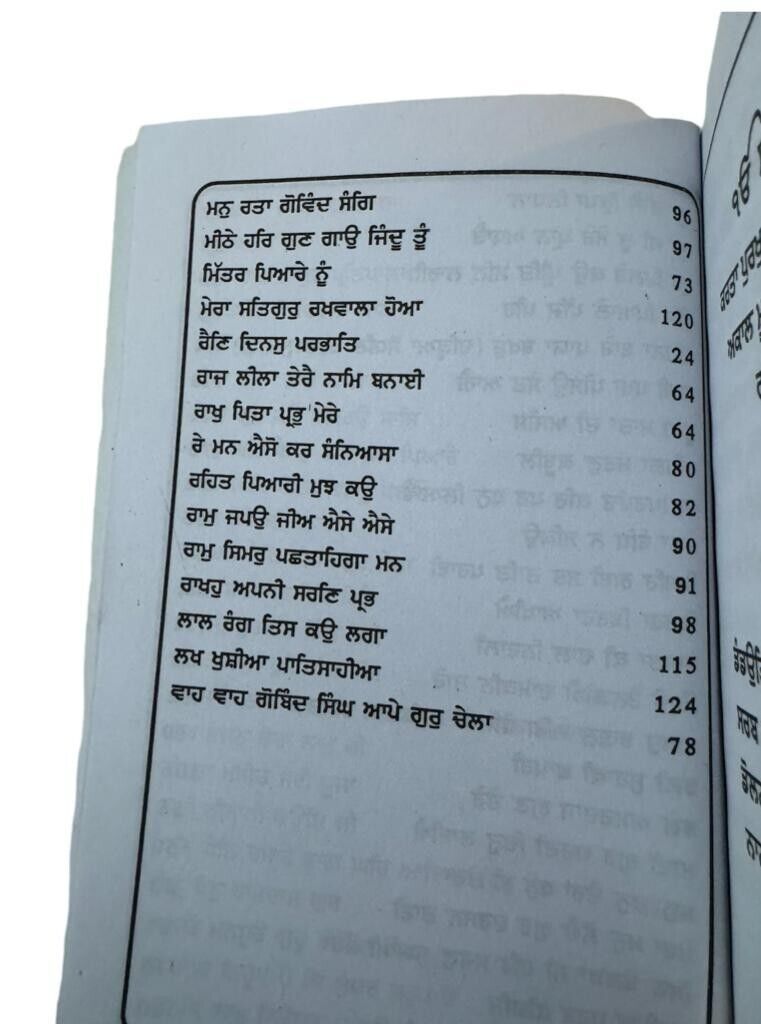 ਮਨੁ ਰਤਾ ਗੋਵਿੰਦ ਸੰਗਿ 96
ਮੀਠੇ ਹਰਿ ਗੁਣ ਗਾਉ ਜਿੰਦੂ ਤੂੰ 97
ਮਿੱਤਰ ਪਿਆਰੇ ਨੂੰ 73
ਮੇਰਾ ਸਤਿਗੁਰੁ ਰਖਵਾਲਾ ਹੋਆ 120
ਰੈਣਿ ਦਿਨਸੁ ਪਰਭਾਤਿ 24
ਰਾਜ ਲੀਲਾ ਤੇਰੈ ਨਾਮਿ ਬਨਾਈ 64
ਰਾਖੁ ਪਿਤਾ ਪ੍ਰਭੁ ਮੇਰੇ 64
ਰੇ ਮਨ ਐਸੋ ਕਰ ਸੰਨਿਆਸਾ 80
ਰਹਿਤ ਪਿਆਰੀ ਮੁਝ ਕਉ 82
ਰਾਮੁ ਜਪਉ ਜੀਅ ਐਸੇ ਐਸੇ 90
ਰਾਮੁ ਸਿਮਰੁ ਪਛਤਾਹਿਗਾ ਮਨ 91
ਰਾਖਹੁ ਅਪਨੀ ਸਰਣਿ ਪ੍ਰਭ 98
ਲਾਲ ਰੰਗ ਤਿਸ ਕਉ ਲਗਾ 115
ਲਖ ਖੁਸ਼ੀਆ ਪਾਤਿਸਾਹੀਆ 124
ਵਾਹ ਵਾਹ ਗੋਬਿੰਦ ਸਿੰਘ ਆਪੇ ਗੁਰੁ ਚੇਲਾ 78
ੴ
ਕਰਤਾ ਪੁਰਖੁ
ਅਕਾਲ
ਸਰਬ